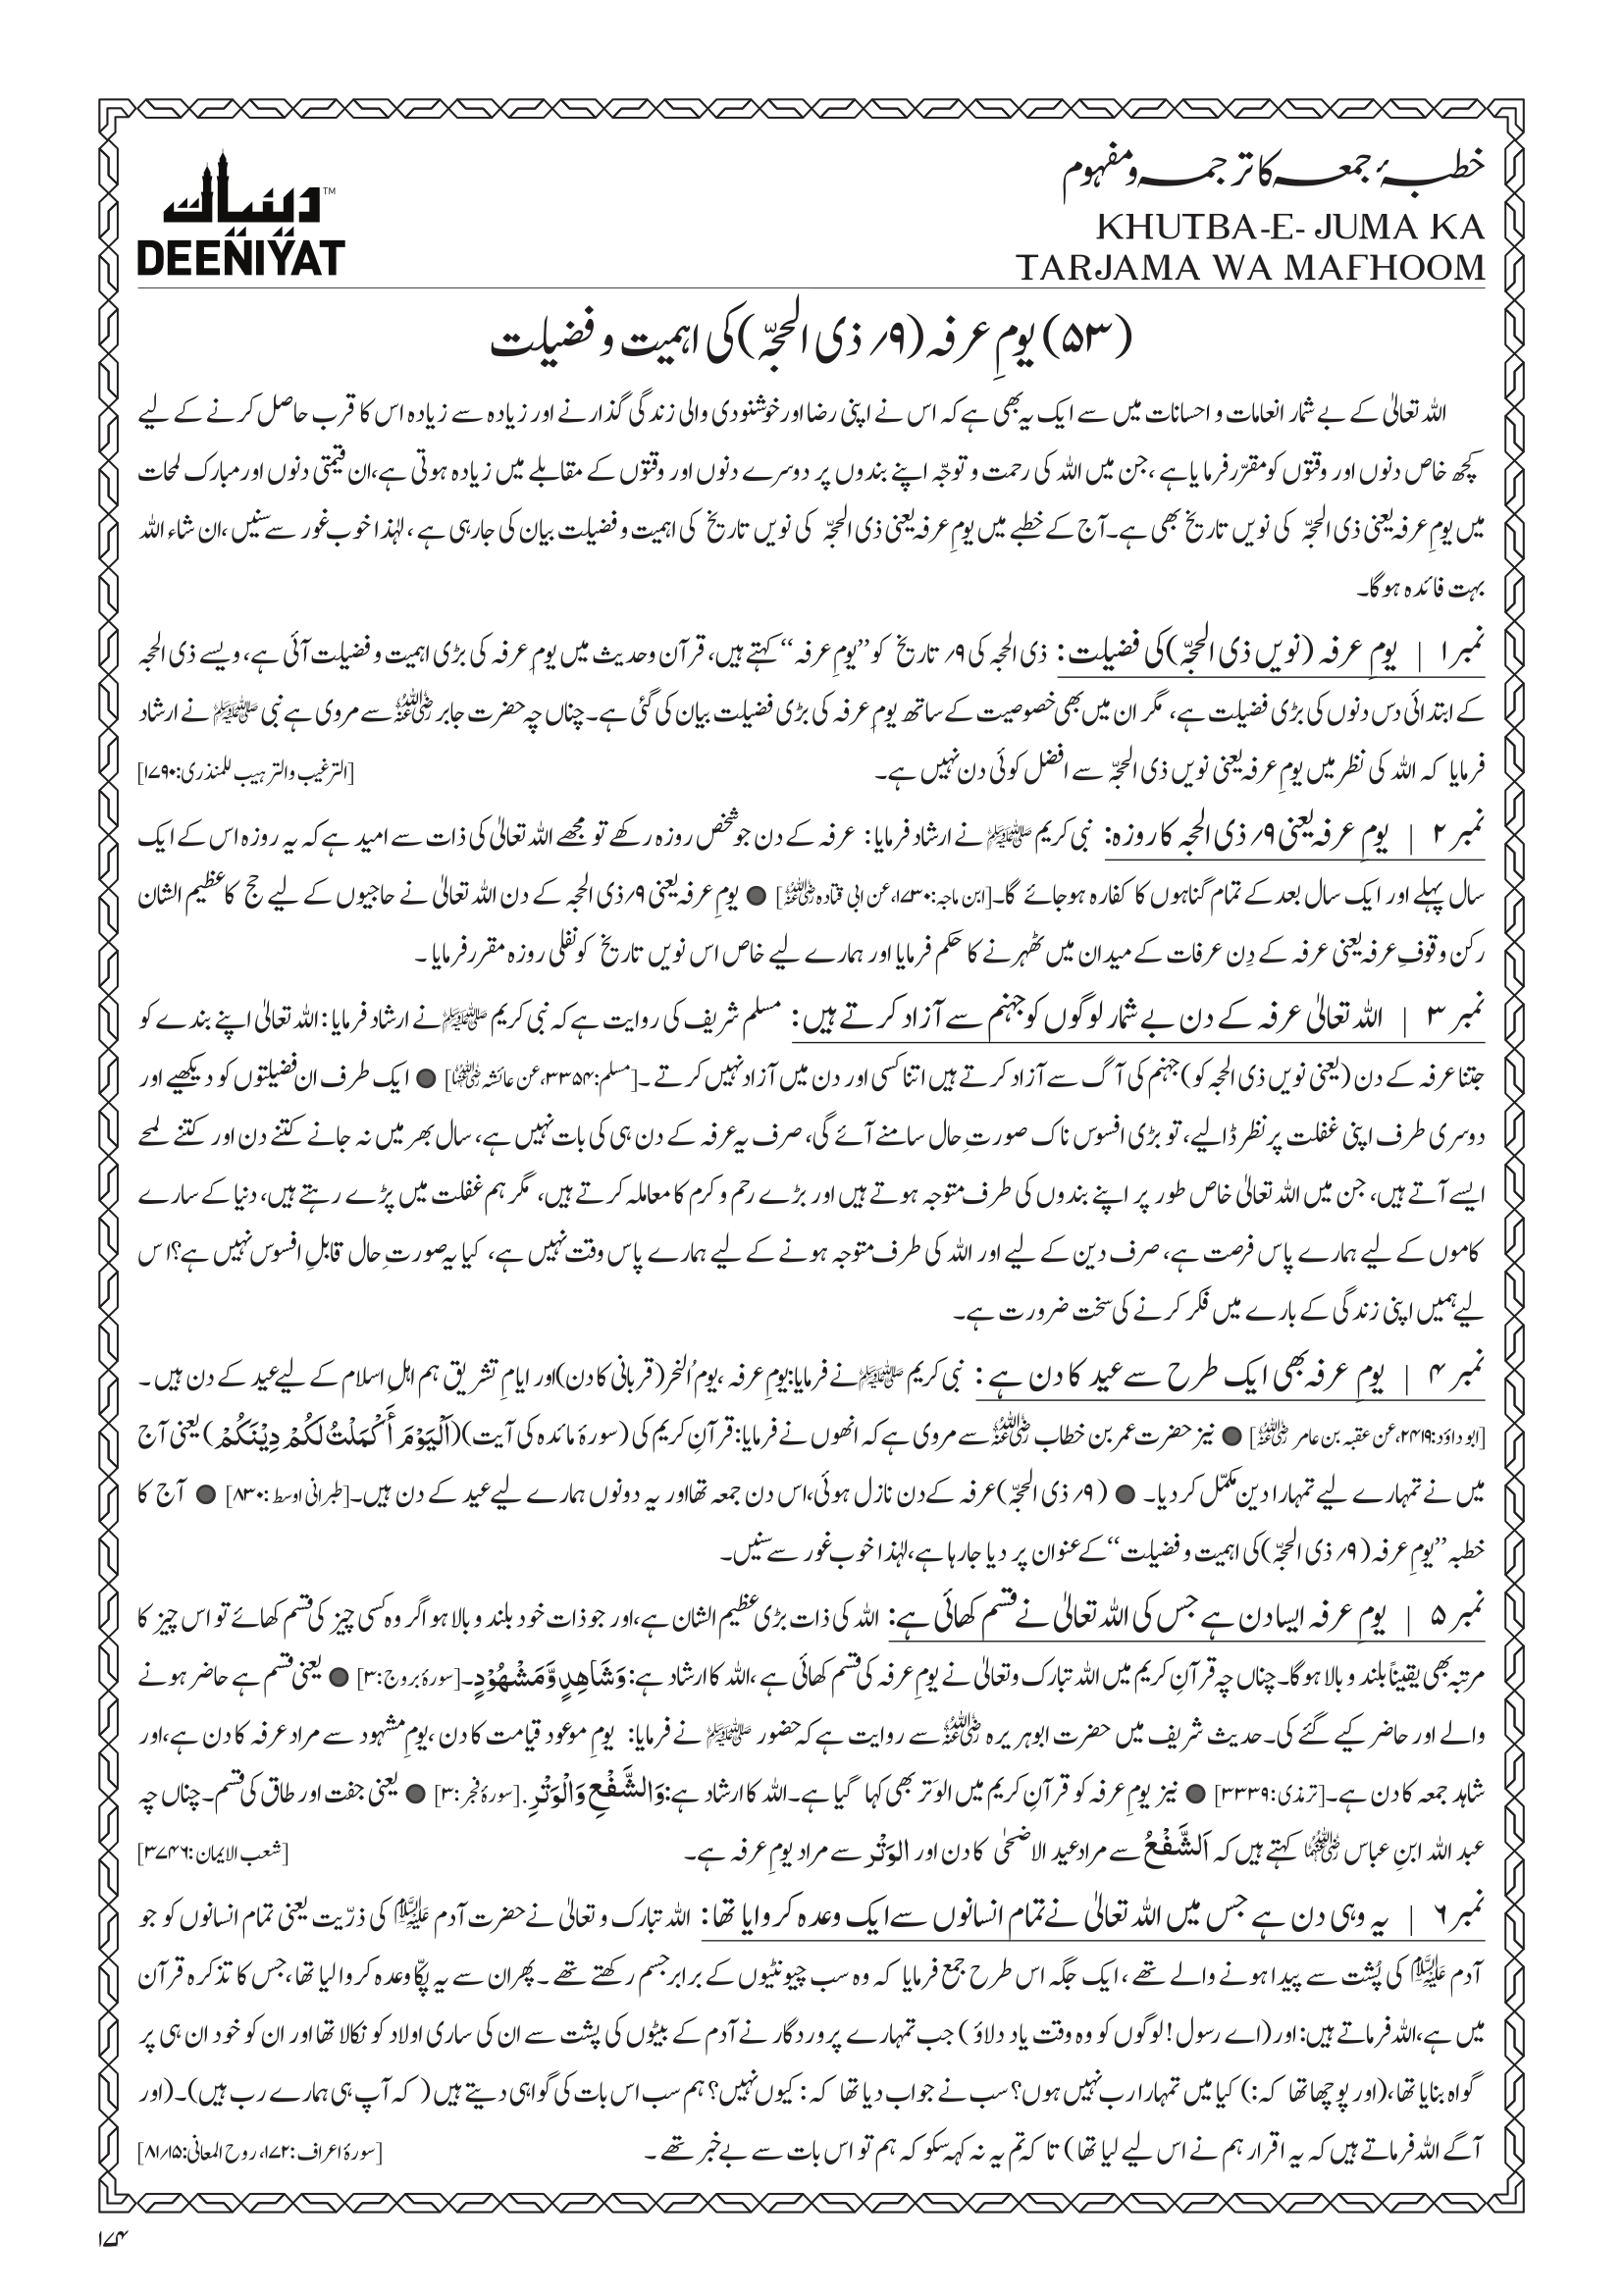 خطبۂ جمعہ کا ترجمہ و مفہوم
دینیات™
KHUTBA-E- JUMA KA
TARJAMA WA MAFHOOM
DEENIYAT
(۵۳) یومِ عرفہ (۹؍ ذی الحجّہ) کی اہمیت و فضیلت
اللہ تعالیٰ کے بے شمار انعامات و احسانات میں سے ایک یہ بھی ہے کہ اس نے اپنی رضا اور خوشنودی والی زندگی گذارنے اور زیادہ سے زیادہ اس کا قرب حاصل کرنے کے لیے
کچھ خاص دنوں اور وقتوں کو مقرّر فرمایا ہے، جن میں اللہ کی رحمت و توجّہ اپنے بندوں پر دوسرے دنوں اور وقتوں کے مقابلے میں زیادہ ہوتی ہے، ان قیمتی دنوں اور مبارک لمحات
میں یومِ عرفہ یعنی ذی الحجّہ کی نویں تاریخ بھی ہے۔ آج کے خطبے میں یومِ عرفہ یعنی ذی الحجّہ کی نویں تاریخ کی اہمیت و فضیلت بیان کی جارہی ہے، لہٰذا خوب غور سے سنیں، ان شاء اللہ
بہت فائدہ ہوگا۔
نمبر ۱ | یومِ عرفہ (نویں ذی الحجّہ) کی فضیلت: ذی الحجہ کی ۹؍ تاریخ کو ”یومِ عرفہ“ کہتے ہیں، قرآن وحدیث میں یومِ عرفہ کی بڑی اہمیت و فضیلت آئی ہے، ویسے ذی الحجہ
کے ابتدائی دس دنوں کی بڑی فضیلت ہے، مگر ان میں بھی خصوصیت کے ساتھ یومِ عرفہ کی بڑی فضیلت بیان کی گئی ہے۔ چناں چہ حضرت جابر رضی اللہ عنہ سے مروی ہے نبی ﷺ نے ارشاد
فرمایا کہ اللہ کی نظر میں یومِ عرفہ یعنی نویں ذی الحجّہ سے افضل کوئی دن نہیں ہے۔ [الترغیب والترہیب للمنذری: ۱۷۹۰]
نمبر ۲ | یومِ عرفہ یعنی ۹؍ ذی الحجہ کا روزہ: نبی کریم ﷺ نے ارشاد فرمایا: عرفہ کے دن جو شخص روزہ رکھے تو مجھے اللہ تعالیٰ کی ذات سے امید ہے کہ یہ روزہ اس کے ایک
سال پہلے اور ایک سال بعد کے تمام گناہوں کا کفارہ ہوجائے گا۔ [ابن ماجہ: ۱۷۳۰، عن ابی قتادہ رضی اللہ عنہ] ● یومِ عرفہ یعنی ۹؍ ذی الحجہ کے دن اللہ تعالیٰ نے حاجیوں کے لیے حج کا عظیم الشان
رکن وقوفِ عرفہ یعنی عرفہ کے دِن عرفات کے میدان میں ٹھہرنے کا حکم فرمایا اور ہمارے لیے خاص اس نویں تاریخ کو نفلی روزہ مقرر فرمایا۔
نمبر ۳ | اللہ تعالیٰ عرفہ کے دن بے شمار لوگوں کو جہنم سے آزاد کرتے ہیں: مسلم شریف کی روایت ہے کہ نبی کریم ﷺ نے ارشاد فرمایا: اللہ تعالیٰ اپنے بندے کو
جتنا عرفہ کے دن (یعنی نویں ذی الحجہ کو) جہنم کی آگ سے آزاد کرتے ہیں اتنا کسی اور دن میں آزاد نہیں کرتے۔ [مسلم: ۳۳۵۴، عن عائشہ رضی اللہ عنہا] ● ایک طرف ان فضیلتوں کو دیکھیے اور
دوسری طرف اپنی غفلت پر نظر ڈالیے، تو بڑی افسوس ناک صورتِ حال سامنے آئے گی، صرف یہ عرفہ کے دن ہی کی بات نہیں ہے، سال بھر میں نہ جانے کتنے دن اور کتنے لمحے
ایسے آتے ہیں، جن میں اللہ تعالیٰ خاص طور پر اپنے بندوں کی طرف متوجہ ہوتے ہیں اور بڑے رحم و کرم کا معاملہ کرتے ہیں، مگر ہم غفلت میں پڑے رہتے ہیں، دنیا کے سارے
کاموں کے لیے ہمارے پاس فرصت ہے، صرف دین کے لیے اور اللہ کی طرف متوجہ ہونے کے لیے ہمارے پاس وقت نہیں ہے، کیا یہ صورتِ حال قابلِ افسوس نہیں ہے؟ اس
لیے ہمیں اپنی زندگی کے بارے میں فکر کرنے کی سخت ضرورت ہے۔
نمبر ۴ | یومِ عرفہ بھی ایک طرح سے عید کا دن ہے: نبی کریم ﷺ نے فرمایا: یومِ عرفہ، یومُ النحر (قربانی کا دن) اور ایامِ تشریق ہم اہلِ اسلام کے لیے عید کے دن ہیں۔
[ابوداؤد: ۲۴۱۹، عن عقبہ بن عامر رضی اللہ عنہ] ● نیز حضرت عمر بن خطاب رضی اللہ عنہ سے مروی ہے کہ انھوں نے فرمایا: قرآنِ کریم کی (سورۂ مائدہ کی آیت) (اَلْيَوْمَ أَكْمَلْتُ لَكُمْ دِيْنَكُمْ) یعنی آج
میں نے تمہارے لیے تمہارا دین مکمّل کردیا۔ ● (۹؍ ذی الحجّہ) عرفہ کے دن نازل ہوئی، اس دن جمعہ تھا اور یہ دونوں ہمارے لیے عید کے دن ہیں۔ [طبرانی اوسط: ۸۳۰] ● آج کا
خطبہ ”یومِ عرفہ (۹؍ ذی الحجّہ) کی اہمیت و فضیلت“ کے عنوان پر دیا جارہا ہے، لہٰذا خوب غور سے سنیں۔
نمبر ۵ | یومِ عرفہ ایسا دن ہے جس کی اللہ تعالیٰ نے قسم کھائی ہے: اللہ کی ذات بڑی عظیم الشان ہے، اور جو ذات خود بلند و بالا ہو اگر وہ کسی چیز کی قسم کھائے تو اس چیز کا
مرتبہ بھی یقیناً بلند و بالا ہوگا۔ چناں چہ قرآنِ کریم میں اللہ تبارک وتعالیٰ نے یومِ عرفہ کی قسم کھائی ہے، اللہ کا ارشاد ہے: وَشَاهِدٍ وَّمَشْهُوْدٍ۔ [سورۂ بروج: ۳] ● یعنی قسم ہے حاضر ہونے
والے اور حاضر کیے گئے کی۔ حدیث شریف میں حضرت ابوہریرہ رضی اللہ عنہ سے روایت ہے کہ حضور ﷺ نے فرمایا: یومِ موعود قیامت کا دن، یومِ مشہود سے مراد عرفہ کا دن ہے، اور
شاہد جمعہ کا دن ہے۔ [ترمذی: ۳۳۳۹] ● نیز یومِ عرفہ کو قرآنِ کریم میں الوَتر بھی کہا گیا ہے۔ اللہ کا ارشاد ہے: وَالشَّفْعِ وَالْوَتْرِ. [سورۂ فجر: ۳] ● یعنی جفت اور طاق کی قسم۔ چناں چہ
عبد اللہ ابنِ عباس رضی اللہ عنہما کہتے ہیں کہ اَلشَّفْعُ سے مراد عید الاضحیٰ کا دن اور الوَتْر سے مراد یومِ عرفہ ہے۔ [شعب الایمان: ۳۷۴۶]
نمبر ۶ | یہ وہی دن ہے جس میں اللہ تعالیٰ نے تمام انسانوں سے ایک وعدہ کروایا تھا: اللہ تبارک و تعالیٰ نے حضرت آدم علیہ السلام کی ذرّیت یعنی تمام انسانوں کو جو
آدم علیہ السلام کی پُشت سے پیدا ہونے والے تھے، ایک جگہ اس طرح جمع فرمایا کہ وہ سب چیونٹیوں کے برابر جسم رکھتے تھے۔ پھر ان سے یہ پکّا وعدہ کروا لیا تھا، جس کا تذکرہ قرآن
میں ہے، اللہ فرماتے ہیں: اور (اے رسول! لوگوں کو وہ وقت یاد دلاؤ) جب تمہارے پروردگار نے آدم کے بیٹوں کی پشت سے ان کی ساری اولاد کو نکالا تھا اور ان کو خود ان ہی پر
گواہ بنایا تھا، (اور پوچھا تھا کہ:) کیا میں تمہارا رب نہیں ہوں؟ سب نے جواب دیا تھا کہ: کیوں نہیں؟ ہم سب اس بات کی گواہی دیتے ہیں (کہ آپ ہی ہمارے رب ہیں)۔ (اور
آگے اللہ فرماتے ہیں کہ یہ اقرار ہم نے اس لیے لیا تھا) تا کہ تم یہ نہ کہہ سکو کہ ہم تو اس بات سے بے خبر تھے۔ [سورۂ اعراف: ۱۷۲، روح المعانی: ۸۱؍۱۵]
۱۷۴